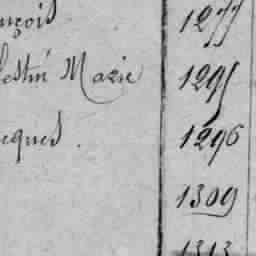 nçois 1277
lestin Marie 1295
cques. 1296
1309
1313